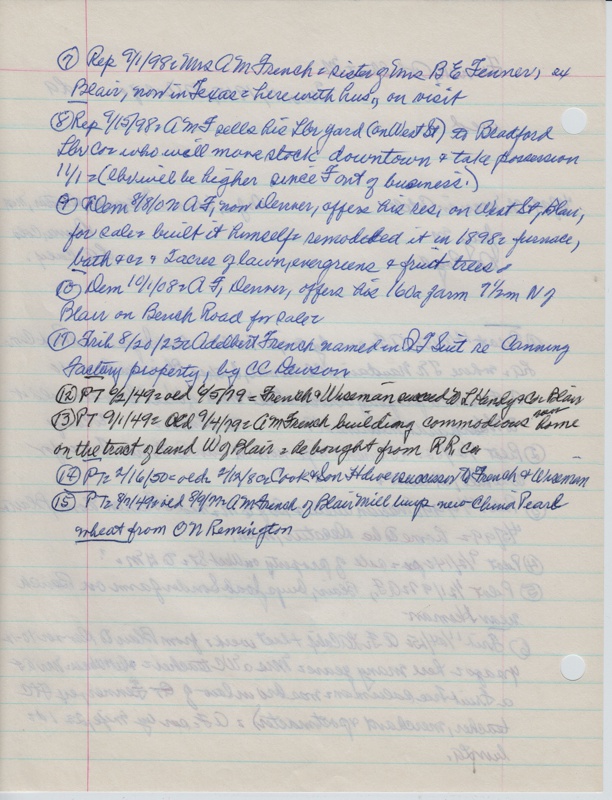 ⑦ Rep 9/1/98 = Mrs A M French = sister of Mrs B E Fenner, ex
Blair, now in Texas = here with hus, on visit
⑧ Rep 9/15/98 = A M F sells his Lbr yard (on West St) to Bradford
Lbr Co = who will move stock downtown & take possession
11/1 = (Lbr will be higher since F out of business!)
⑨ Dem 8/8/07 = A F, now Denver, offers his res, on West St, Blair,
for sale = built it himself = remodeled it in 1898 = furnace,
bath &c & 7 acres of lawn, evergreens & fruit trees
⑩ Dem 10/1/08 = A F, Denver, offers his 160a farm 7 1/2 m N of
Blair on Bench Road for sale =
⑪ Trib 8/20/23 = Adelbert French named in Q T Suit re Canning
factory property, by C C Dawson
⑫ PT 9/2/49 = oed 9/5/79 = French & Wiseman succeed D L Henly & Co Blair
⑬ PT 9/1/49 = oed 9/4/79 = A M French building commodious new home
on the tract of land W of Blair = he bought from RR Co
⑭ PT = 2/16/50 = oed = 2/12/80 = Cook & Son successor to French & Wiseman
⑮ PT = = oed = A M French of Blair Mill buys new China Pearl
wheat from O N Remington